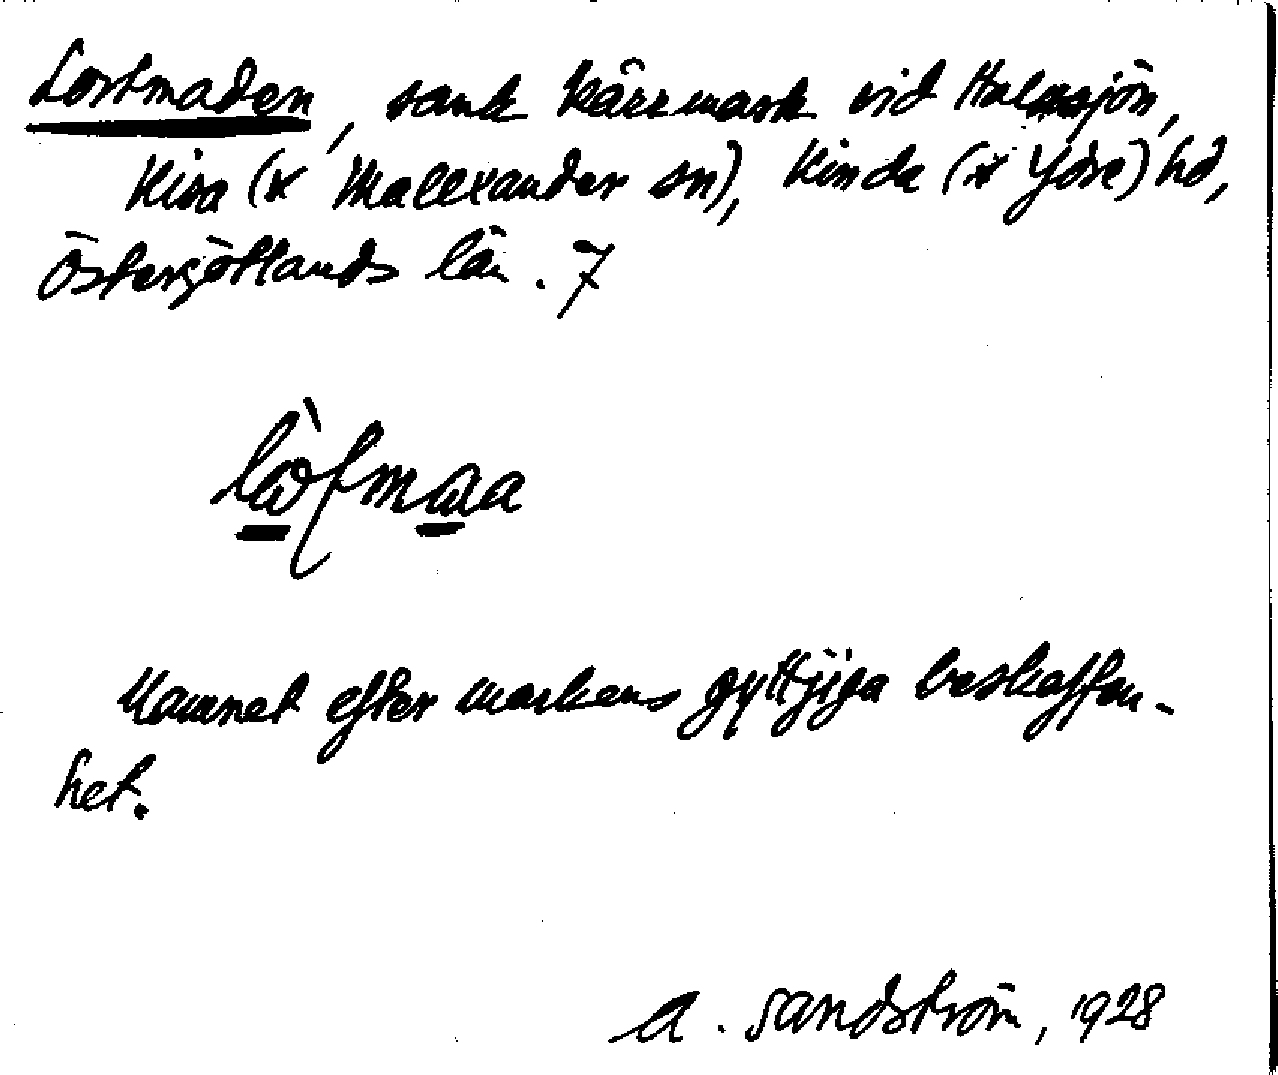 Lortmaden, sank kärrmark vid Halesjön,
Kisa (x Malexander sn), Kinda (x Ydre) hd,
Östergötlands län. 7
Namnet efter markens gyttjiga beskaffen-
het.
A. Sandström, 1928